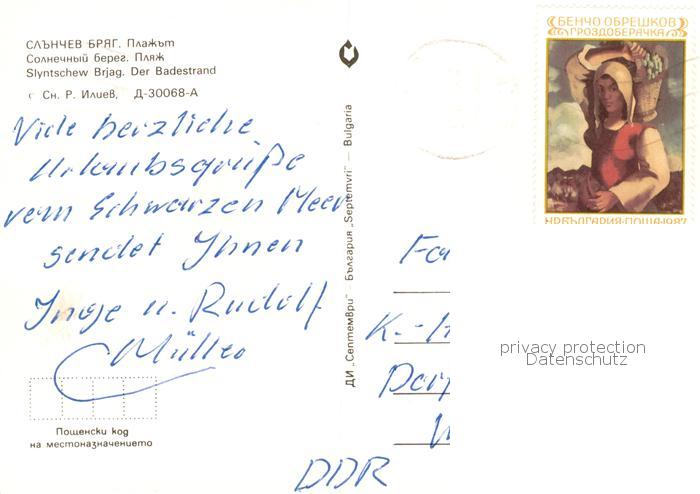 СЛЪНЧЕВ БРЯГ. Плажът
Солнечный берег. Пляж
Slyntschew Brjag. Der Badestrand
Сн. Р. Илиев, Д-30068-А
Viele herzliche
Urlaubsgrüße
vom Schwarzen Meer
sendet Ihnen
Inge u. Rudolf
Müller
Пощенски код
на местоназначението
ДИ „Септември" — България „Septemvri" — Bulgaria
БЕНЧО ОБРЕШКОВ
ГРОЗДОБЕРАЧКА
НР БЪЛГАРИЯ·ПОЩА·1987
Fa
K.-
Dor
DDR
privacy protection
Datenschutz